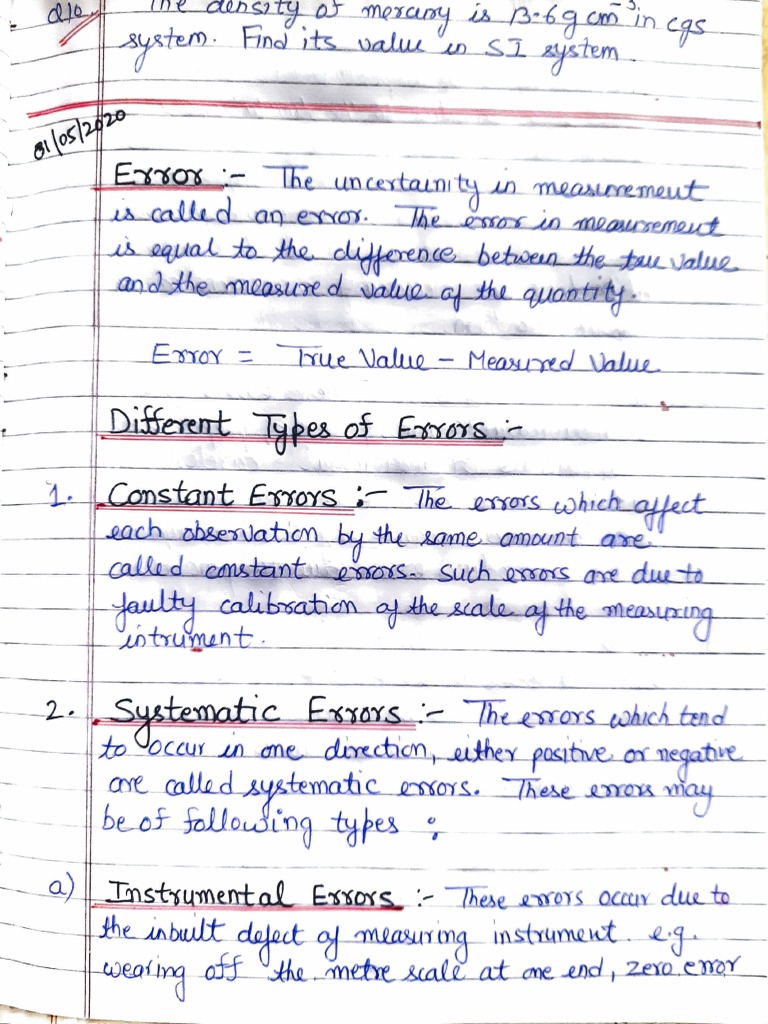 Q10 The density of mercury is 13.6 g cm⁻³ in cgs
system. Find its value in SI system.
01/05/2020
Error :- The uncertainity in measurement
is called an error. The error in measurement
is equal to the difference between the true value
and the measured value of the quantity.
Error = True Value - Measured Value
Different Types of Errors :-
1. Constant Errors :- The errors which affect
each observation by the same amount are
called constant errors. Such errors are due to
faulty calibration of the scale of the measuring
intrument.
2. Systematic Errors :- The errors which tend
to occur in one direction, either positive or negative
are called systematic errors. These errors may
be of following types :
a) Instrumental Errors :- These errors occur due to
the inbuilt defect of measuring instrument. e.g.
wearing off the metre scale at one end, zero error